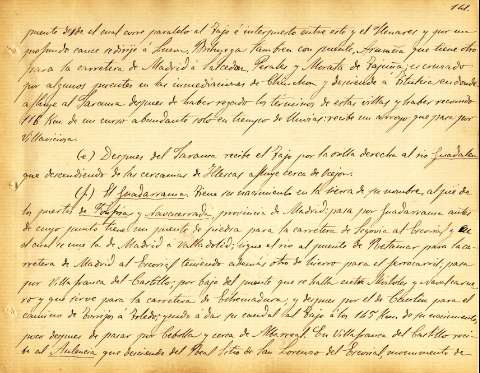 161.
puente desde el cual corre paralelo al Tajo é interpuesto entre este y el Henares y por un
profundo cauce se dirije á Brihuega tambien con puente, Aranzueque que tiene otro
para la carretera de Madrid á Perales y Morata de Tajuña; es cruzado
por algunos puentes en las inmediaciones de Chinchon y desciende á Titulcia en donde
afluye al Jarama despues de haber regado los términos de estas villas y haber recorrido
116 Km. de un curso abundante solo en tiempo de lluvias: recibe un arroyo que pasa por
Villaviciosa.
(e) Despues del Jarama recibe el Tajo por la orilla derecha al rio Guadaten
que descendiendo de las cercanias de Illescas afluye cerca de Vejon.
(h) El Guadarrama tiene su nacimiento en la sierra de su nombre, al pié de
los puertos de Tablada y Navacerrada, provincia de Madrid: pasa por Guadarrama antes
de cuyo punto tiene un puente de piedra para la carretera de Segovia al Escorial y
el cual se une la de Madrid á Valladolid; sigue el rio al puente de Retamar para la ca-
rretera de Madrid al Escorial teniendo además otro de hierro para el ferrocarril, pasa
por Villafranca del Castillo; por bajo del puente que se halla entre Móstoles y Navalcarne-
ro y que sirve para la carretera de Extremadura, y despues por el de para el
camino de Torrijos á Toledo; yendo á dar su caudal al Tajo á los 145 Km. de su nacimiento
poco despues de pasar por Cebolla y cerca de Albarreal. En Villafranca del Castillo reci-
be al Aulencia que desciende del Real Sitio de San Lorenzo del Escorial, monumento de